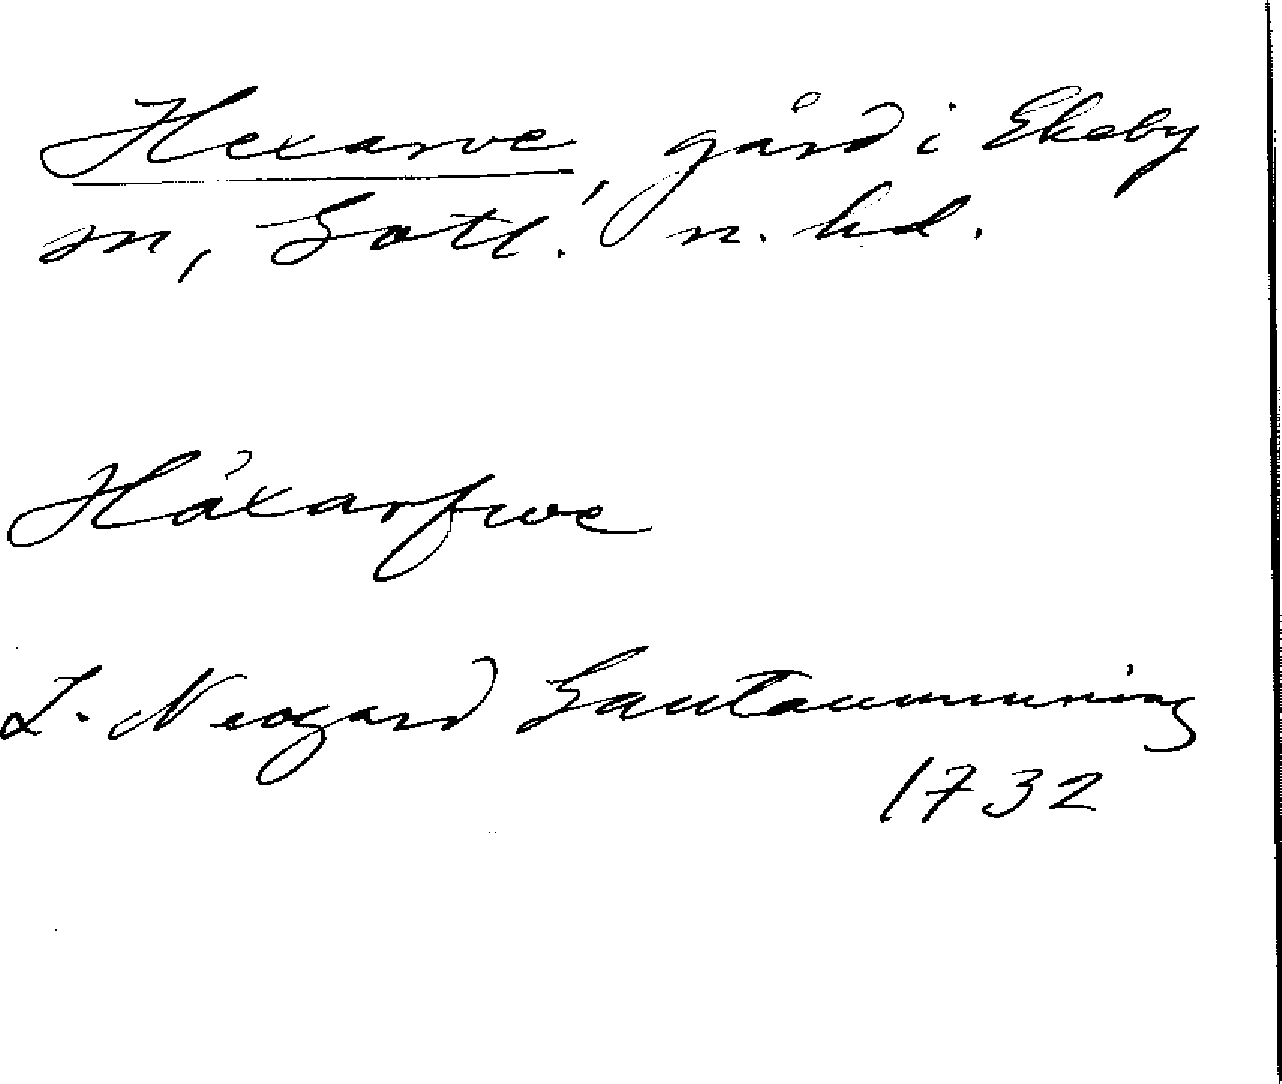 Hexarve, gård i Ekeby
sn, Gotl. n. hd.
Håxarfwe
L. Neogard Gautauminning
1732